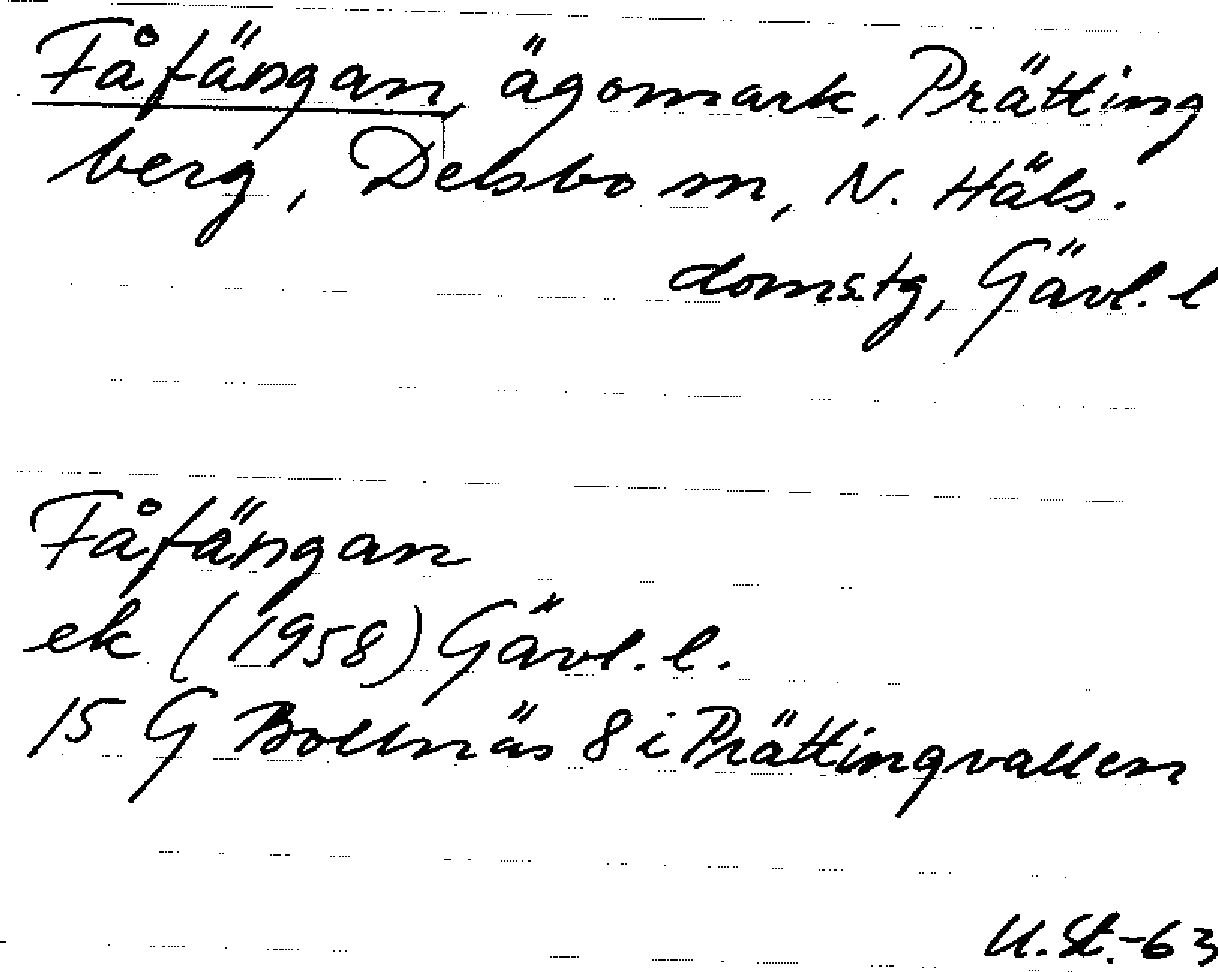 Fåfängan, ägomark, Prätting
berg, Delsbo sn, N. Häls.
domstg, Gävl. l
Fåfängan
ek (1958) Gävl. l.
15 G Bollnäs 8 i Prättingvallen
U.St.-63